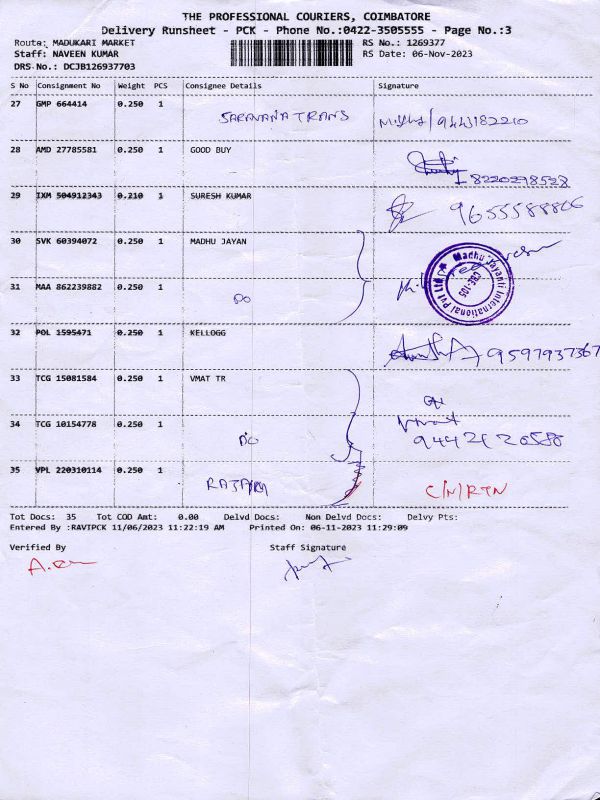 THE PROFESSIONAL COURIERS, COIMBATORE
Delivery Runsheet - PCK - Phone No.:0422-3505555 - Page No.:3
Route: MADUKARI MARKET RS No.: 1269377
Staff: NAVEEN KUMAR RS Date: 06-Nov-2023
DRS No.: DCJB126937703
S No Consignment No Weight PCS Consignee Details Signature
27 GMP 664414 0.250 1 SARAVANA TRANS 9443182210
28 AMD 27785581 0.250 1 GOOD BUY 8220298528
29 IXM 504912343 0.210 1 SURESH KUMAR 9655588866
30 SVK 60394072 0.250 1 MADHU JAYAN
Madhu Jayanti International Pvt Ltd
CBE-105
31 MAA 862239882 0.250 1 DO
32 POL 1595471 0.250 1 KELLOGG 9597937367
33 TCG 15081584 0.250 1 VMAT TR
34 TCG 10154778 0.250 1 DO Vmat
35 VPL 220310114 0.250 1 C/N/RTN
Tot Docs: 35 Tot COD Amt: 0.00 Delvd Docs: Non Delvd Docs: Delvy Pts:
Entered By :RAVIPCK 11/06/2023 11:22:19 AM Printed On: 06-11-2023 11:29:09
Verified By Staff Signature